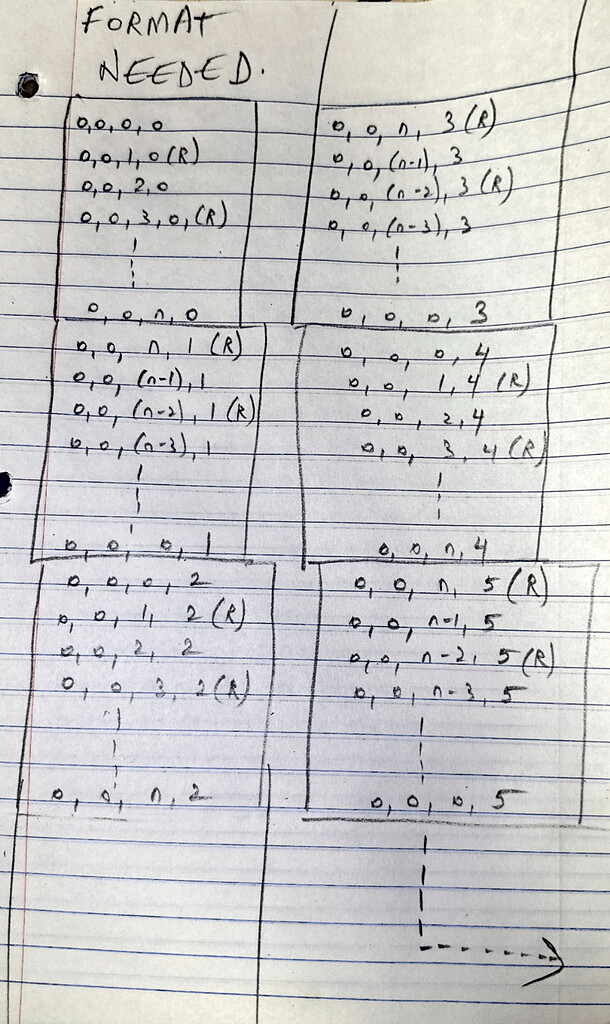 FORMAT
NEEDED.
0,0,0,0
0,0,1,0(R)
0,0,2,0
0,0,3,0,(R)
0,0,n,0
0,0,n,1(R)
0,0,(n-1),1
0,0,(n-2),1(R)
0,0,(n-3),1
0,0,0,1
0,0,0,2
0,0,1,2(R)
0,0,2,2
0,0,3,2(R)
0,0,n,2
0,0,n,3(R)
0,0,(n-1),3
0,0,(n-2),3(R)
0,0,(n-3),3
0,0,0,3
0,0,0,4
0,0,1,4(R)
0,0,2,4
0,0,3,4(R)
0,0,n,4
0,0,n,5(R)
0,0,n-1,5
0,0,n-2,5(R)
0,0,n-3,5
0,0,0,5